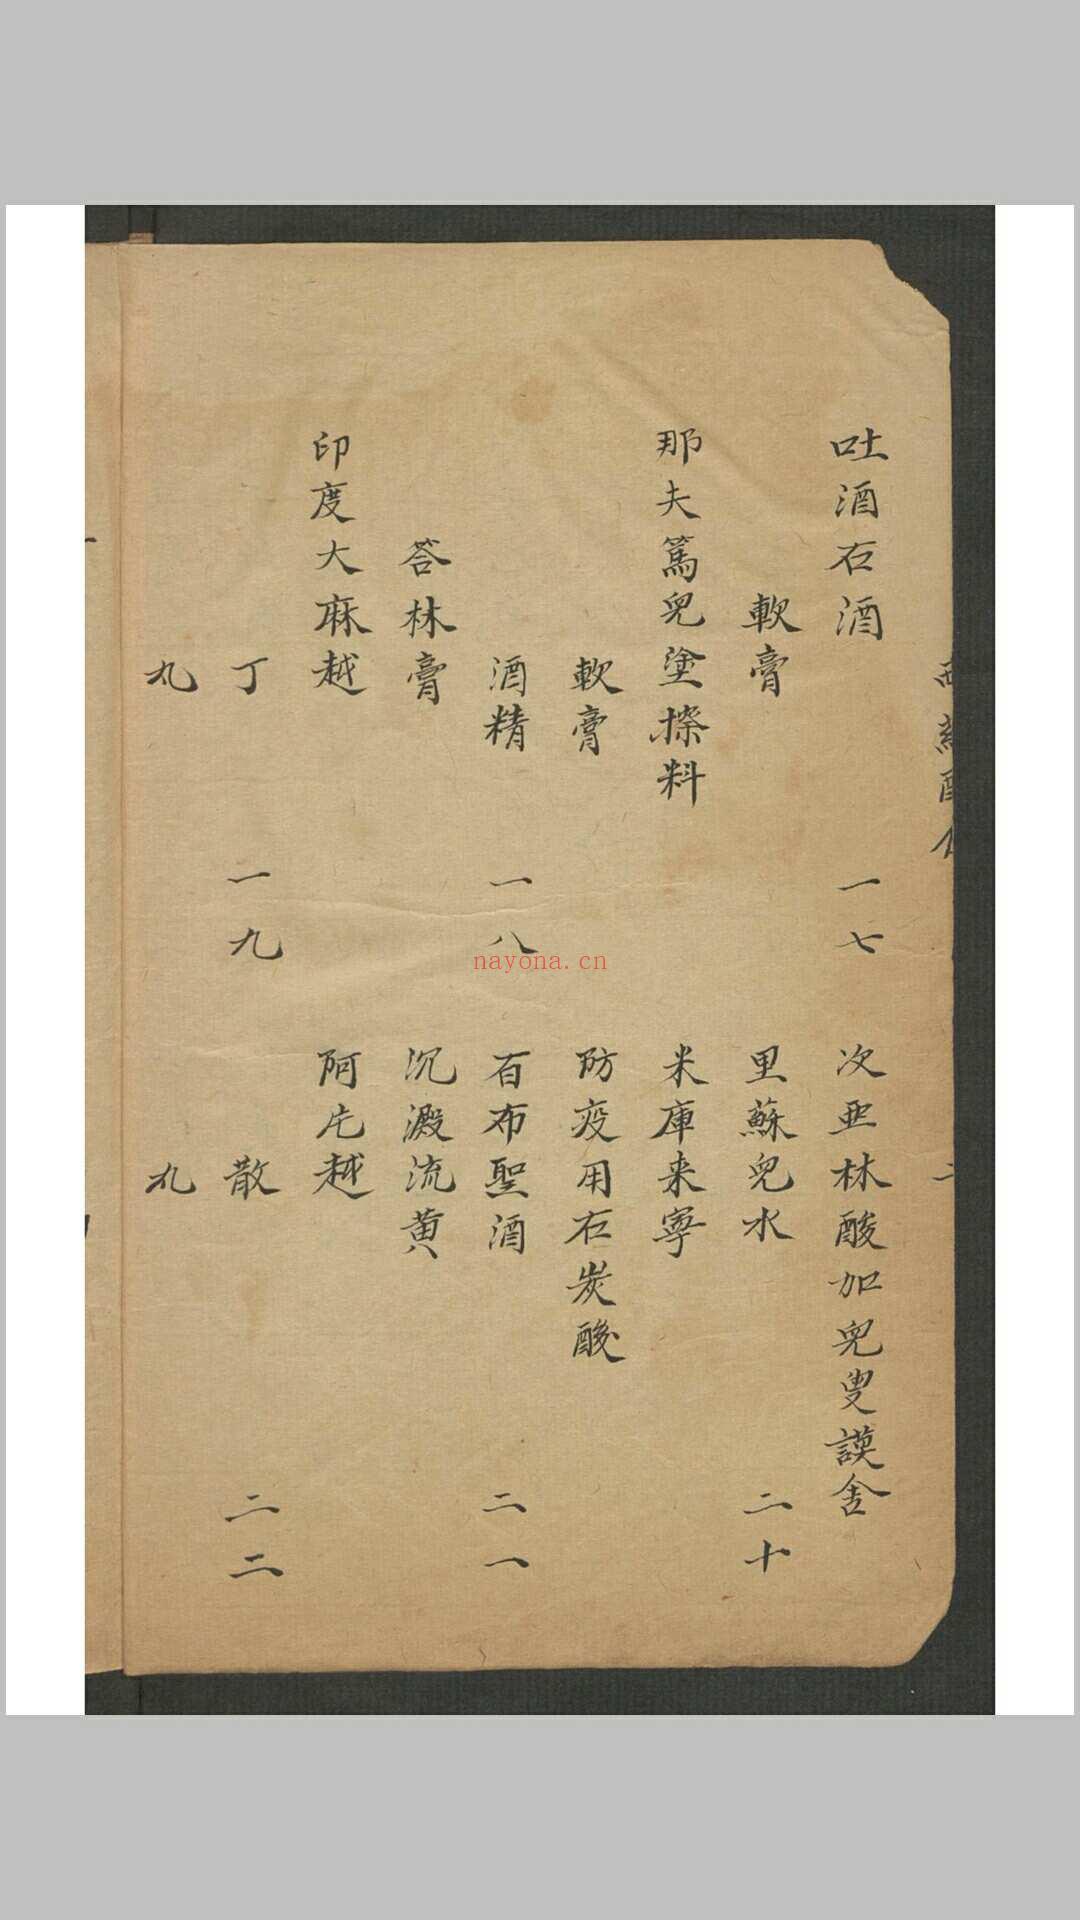 吐酒石酒 一七
軟膏
那夫篤兒塗搽料
軟膏
酒精 一八
答林膏
印度大麻越
丁 一九
丸
次亜林酸加兒叟謨舍
里蘇兒水 二十
米庫来寧
防疫用石炭酸
百布聖酒 二一
沉澱流黄
阿片越
散 二二
丸
nayona.cn